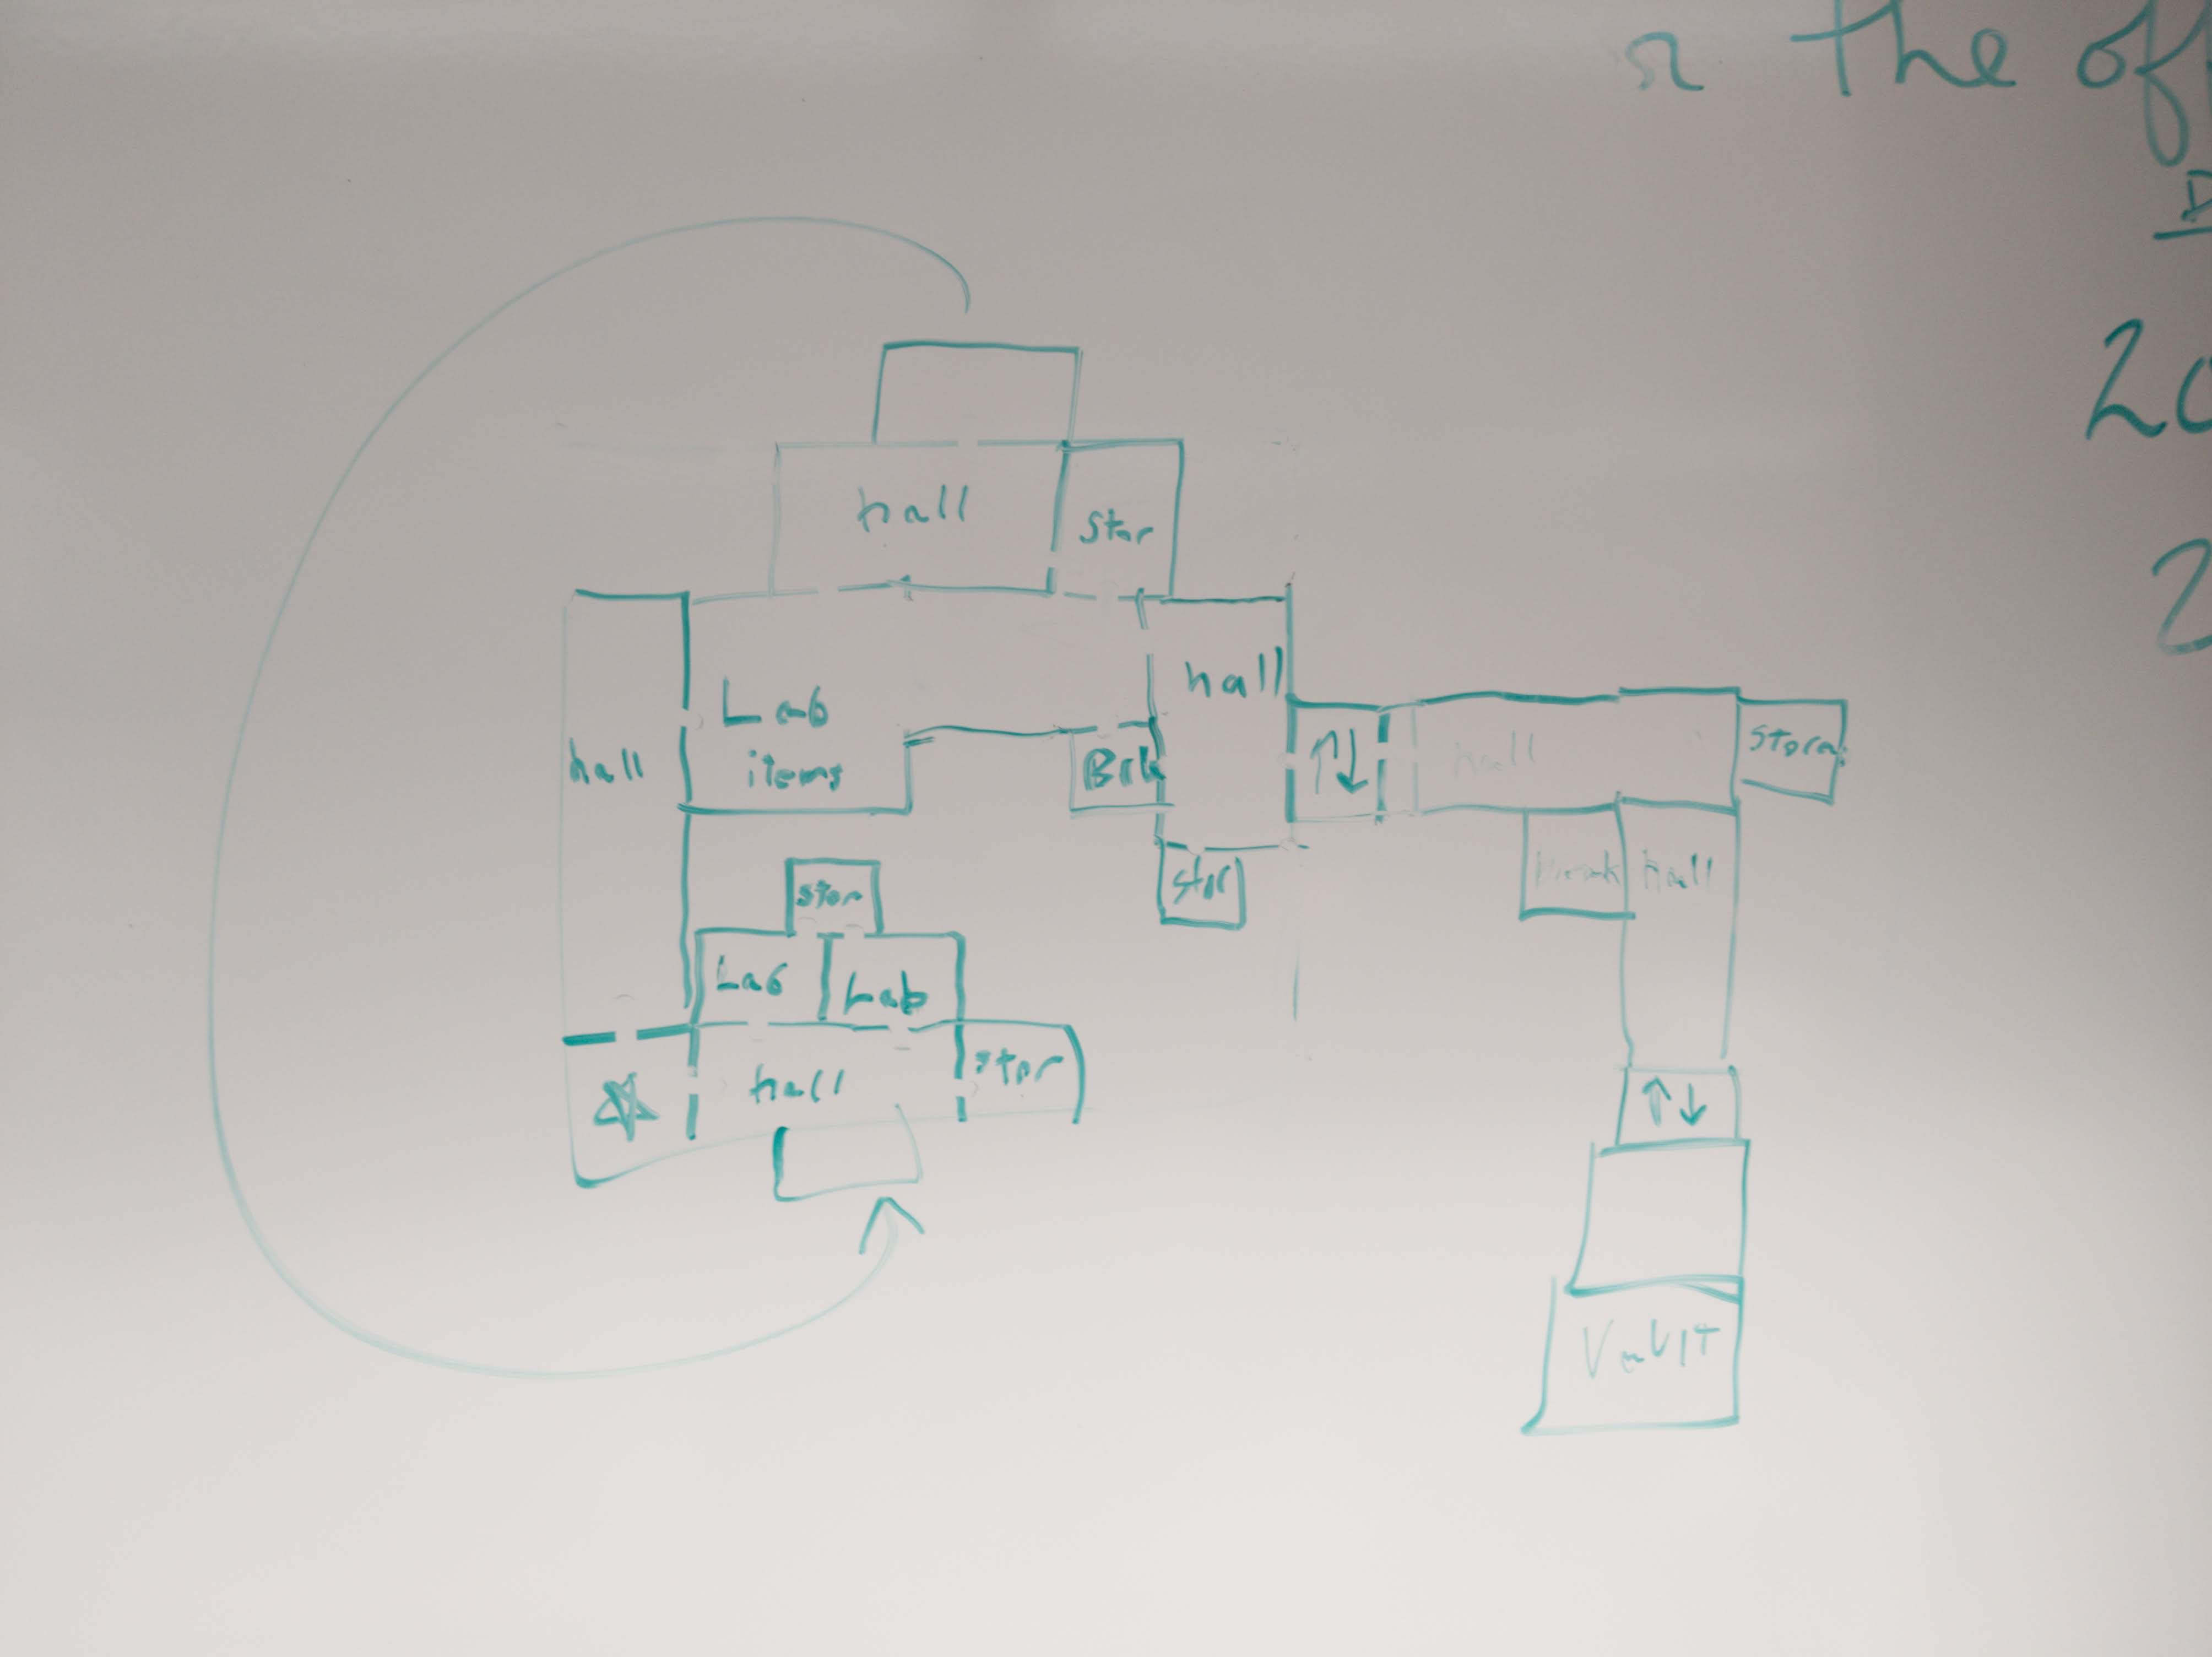 the of
20
2
hall
Stor
hall
Lab
items
hall
Brk
hall
Stora
stor
break
hall
stor
Lab
Lab
hall
stor
VaulT